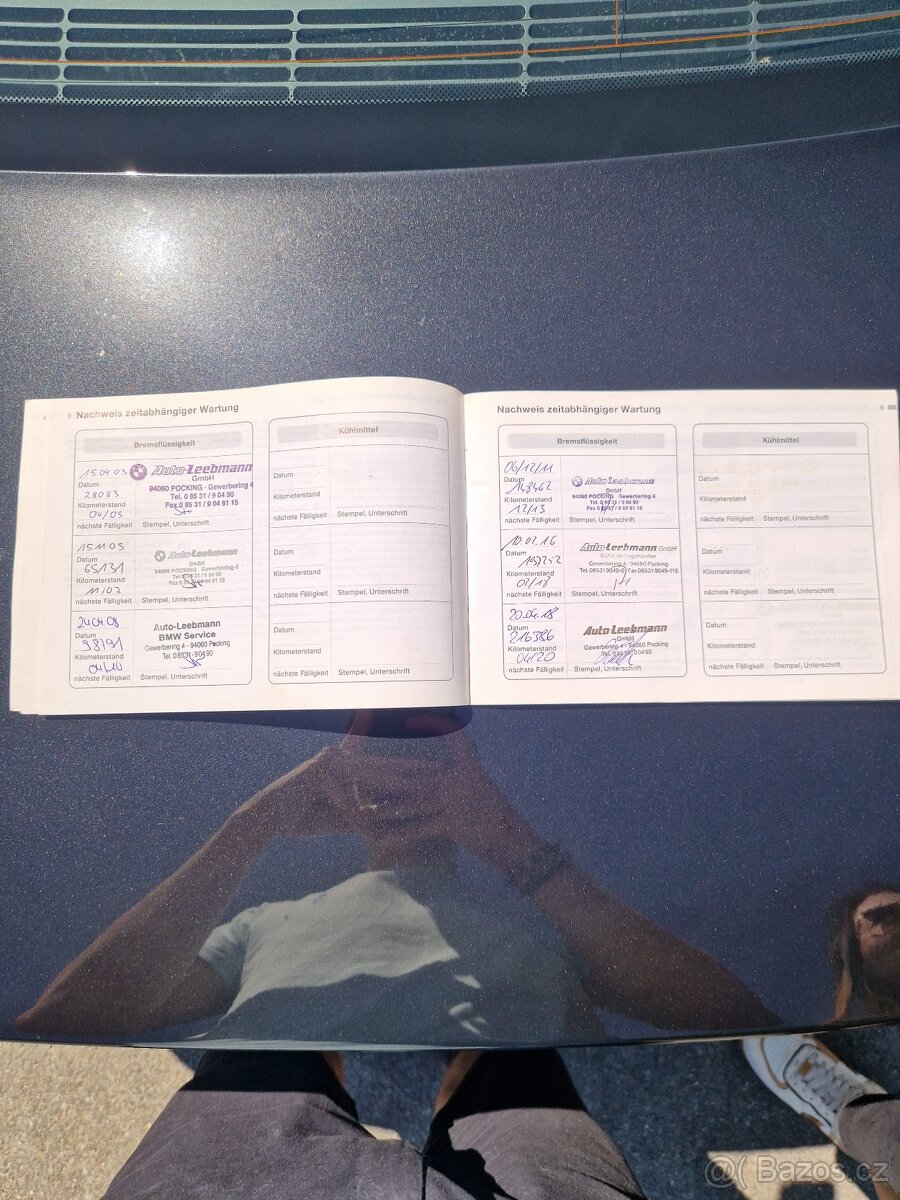 8 Nachweis zeitabhängiger Wartung
Bremsflüssigkeit
15.04.03
Datum
28083
Kilometerstand
04/05
nächste Fälligkeit
Auto-Leebmann
GmbH
94060 POCKING · Gewerbering 4
Tel. 0 85 31 / 9 04 90
Fax 0 85 31 / 9 04 91 15
Stempel, Unterschrift
15.11.05
Datum
65131
Kilometerstand
11/07
nächste Fälligkeit
Auto-Leebmann
GmbH
94060 POCKING · Gewerbering 4
Tel. 0 85 31 / 9 04 90
Stempel, Unterschrift
24.04.08
Datum
98191
Kilometerstand
04/10
nächste Fälligkeit
Auto-Leebmann
BMW Service
Gewerbering 4 · 94060 Pocking
Tel. 08531-90490
Stempel, Unterschrift
Kühlmittel
Datum
Kilometerstand
nächste Fälligkeit Stempel, Unterschrift
Datum
Kilometerstand
nächste Fälligkeit Stempel, Unterschrift
Datum
Kilometerstand
nächste Fälligkeit Stempel, Unterschrift
Nachweis zeitabhängiger Wartung 9
Bremsflüssigkeit
06/12/11
Datum
148462
Kilometerstand
12/13
nächste Fälligkeit
Auto-Leebmann
GmbH
94060 POCKING · Gewerbering 4
Stempel, Unterschrift
10.02.16
Datum
Kilometerstand
02/18
nächste Fälligkeit
Auto-Leebmann GmbH
BMW Vertragshändler
Gewerbering 4 · 94060 Pocking
Tel. 08531/9049-0 Fax 08531/9049-115
Stempel, Unterschrift
20.04.18
Datum
216386
Kilometerstand
04/20
nächste Fälligkeit
Auto Leebmann
GmbH
Gewerbering 4 · 94060 Pocking
Tel. 08531/90490
Stempel, Unterschrift
Kühlmittel
Datum
Kilometerstand
nächste Fälligkeit Stempel, Unterschrift
Datum
Kilometerstand
nächste Fälligkeit Stempel, Unterschrift
Datum
Kilometerstand
nächste Fälligkeit Stempel, Unterschrift
Bazos.cz